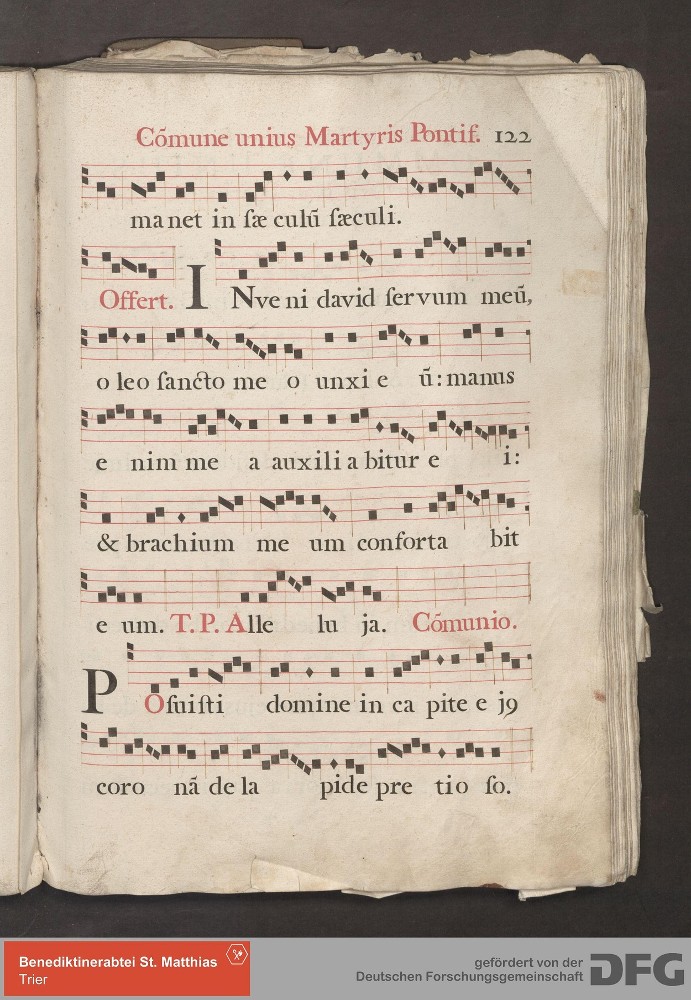 Cõmune unius Martyris Pontif. 122
manet in sæ culũ sæculi.
Offert. INve ni david servum meũ,
o leo sancto me o unxi e ũ: manus
e nim me a auxili a bitur e i:
& brachium me um conforta bit
e um. T. P. Alle lu ja. Cõmunio.
POsuisti domine in ca pite e j9
coro nã de la pide pre tio so.
Benediktinerabtei St. Matthias
Trier
gefördert von der
Deutschen Forschungsgemeinschaft DFG